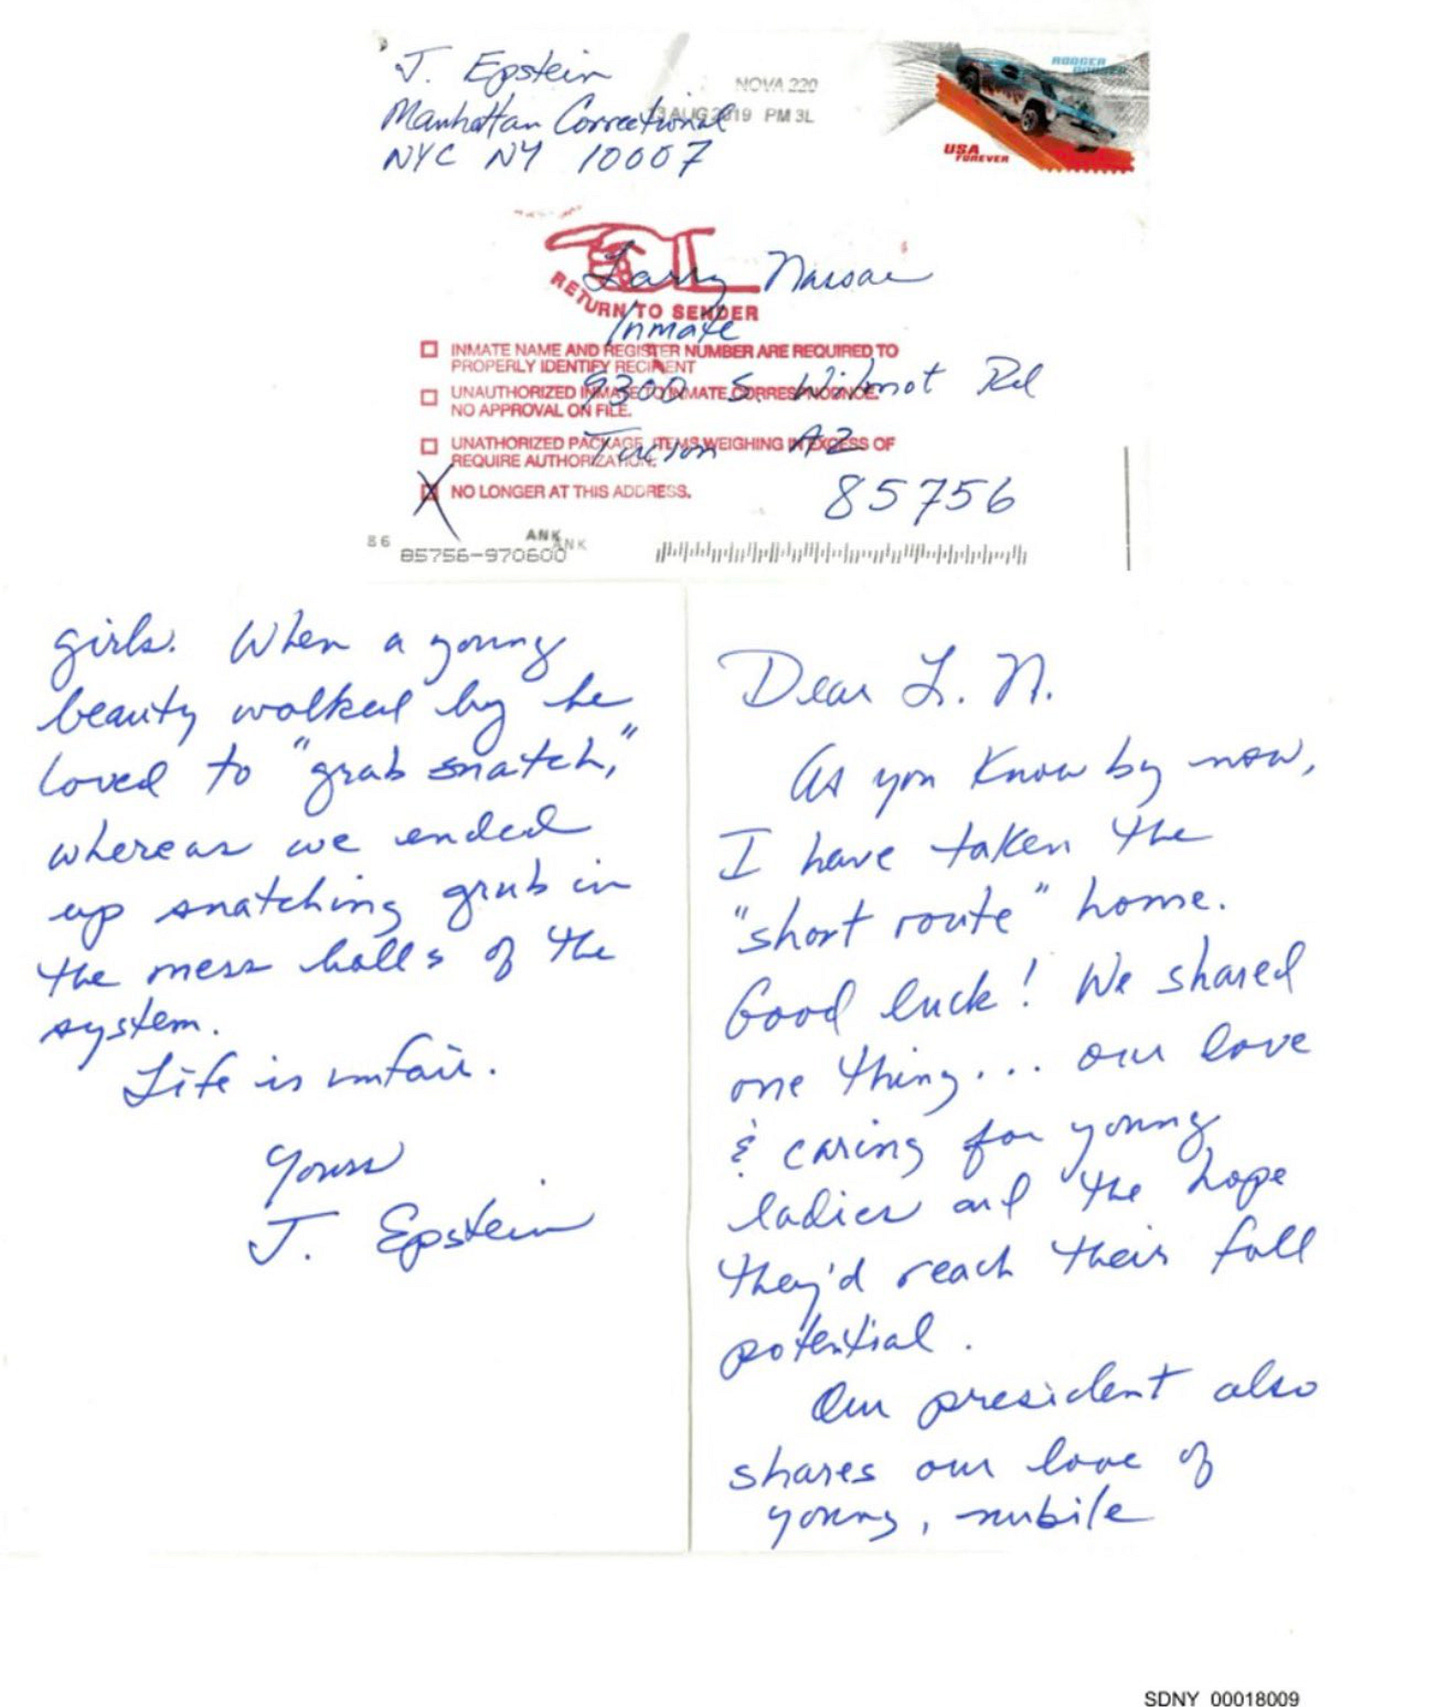 J. Epstein
Manhattan Correctional
NYC NY 10007
NOVA 220
13 AUG 2019 PM 3L
RODGER DODGER
USA
FOREVER
Larry Nassar
RETURN TO SENDER
Inmate
☐ INMATE NAME AND REGISTER NUMBER ARE REQUIRED TO
PROPERLY IDENTIFY RECIPIENT
9300 S. Wilmot Rd
☐ UNAUTHORIZED INMATE TO INMATE CORRESPONDENCE.
NO APPROVAL ON FILE.
Tucson AZ
☐ UNATHORIZED PACKAGE, ITEMS WEIGHING IN EXCESS OF
REQUIRE AUTHORIZATION.
X NO LONGER AT THIS ADDRESS.
85756
86
ANK
ANK
85756-970600
Dear L. N.
As you know by now,
I have taken the
"short route" home.
Good luck! We shared
one thing... our love
& caring for young
ladies and the hope
they'd reach their full
potential.
Our president also
shares our love of
young, nubile
girls. When a young
beauty walked by he
loved to "grab snatch,"
whereas we ended
up snatching grub in
the mess halls of the
system.
Life is unfair.
Yours
J. Epstein
SDNY_00018009